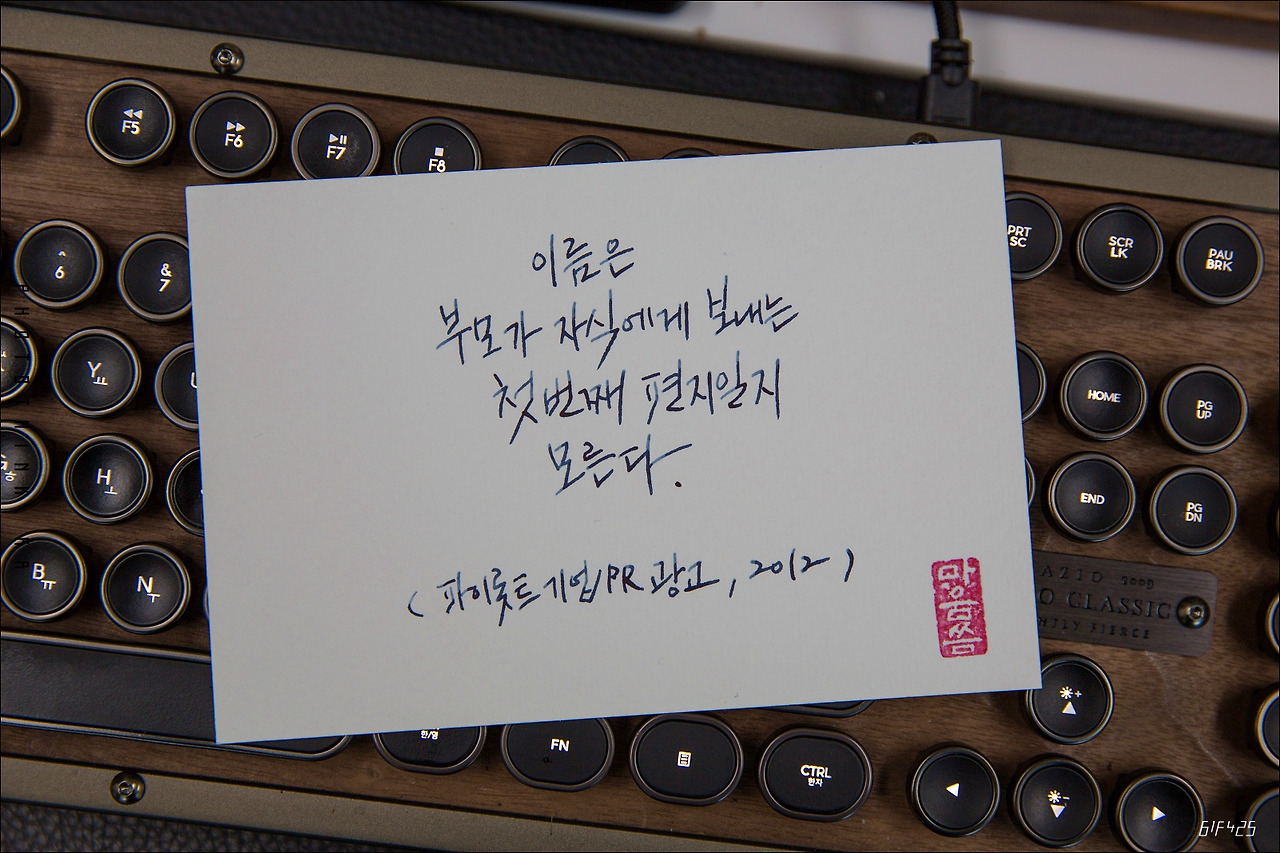 F5
F6
F7
F8
이름은
부모가 자식에게 보내는
첫번째 편지일지
모른다.
( 파이롯트 기업PR 광고, 2012 )
PRT
SC
SCR
LK
PAU
BRK
^
6
&
7
Y
ㅛ
U
H
ㅗ
B
ㅠ
N
ㅜ
HOME
PG
UP
END
PG
DN
AZIO
O CLASSIC
TLY FIERCE
한/영
FN
CTRL
한자
GIF425